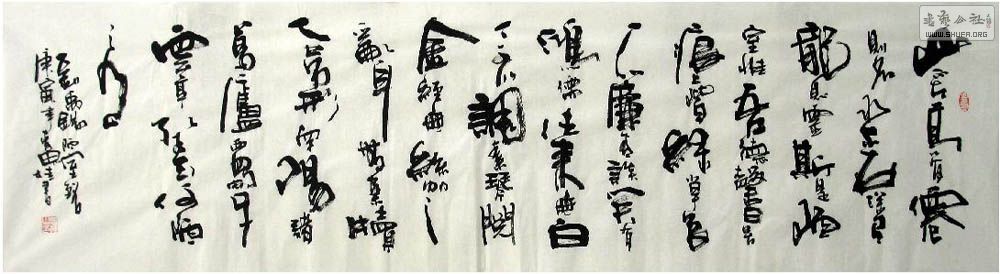 山不在高有仙
則名水不在深有
龍則靈斯是陋
室惟吾德馨苔
痕上階綠草色
入簾青談笑有
鴻儒往來無白
丁可以調素琴閱
金經無絲竹之
亂耳無案牘
之勞形南陽諸
葛廬西蜀子
雲亭孔子云何陋
之有
劉禹錫陋室銘
庚寅年書
书艺公社
WWW.SHUFA.ORG